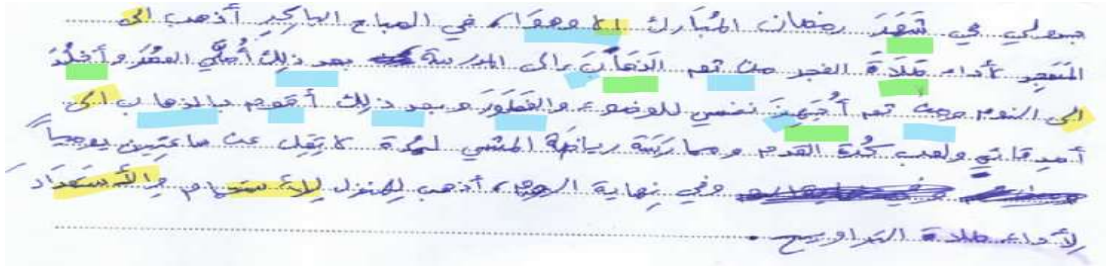 يومي في شَهَرَ رمضان المُبارك وهو، في الصباح الباكِر أذهب الى
المَسَجِد لأداء صَلَاةَ الفجر من ثم الذهاب الى المدرسة بعد ذلك أُصلّي العصر وأخلُدَ
الى النوم ومن ثم أُجَهِزَ نفسي للوضوء والفَطَوَرَ وبعد ذلك أقوم بالذهاب الى
أصدقائي ولعب كُرة القدم وممارَسَة رياضَة المشي لمُدة لا تقِل عن ساعَتَين يومياً
وفي نِهاية اليوم، أذهب للمنزل للإستحمام والأستعداد
لأداء صلاة التراويح.